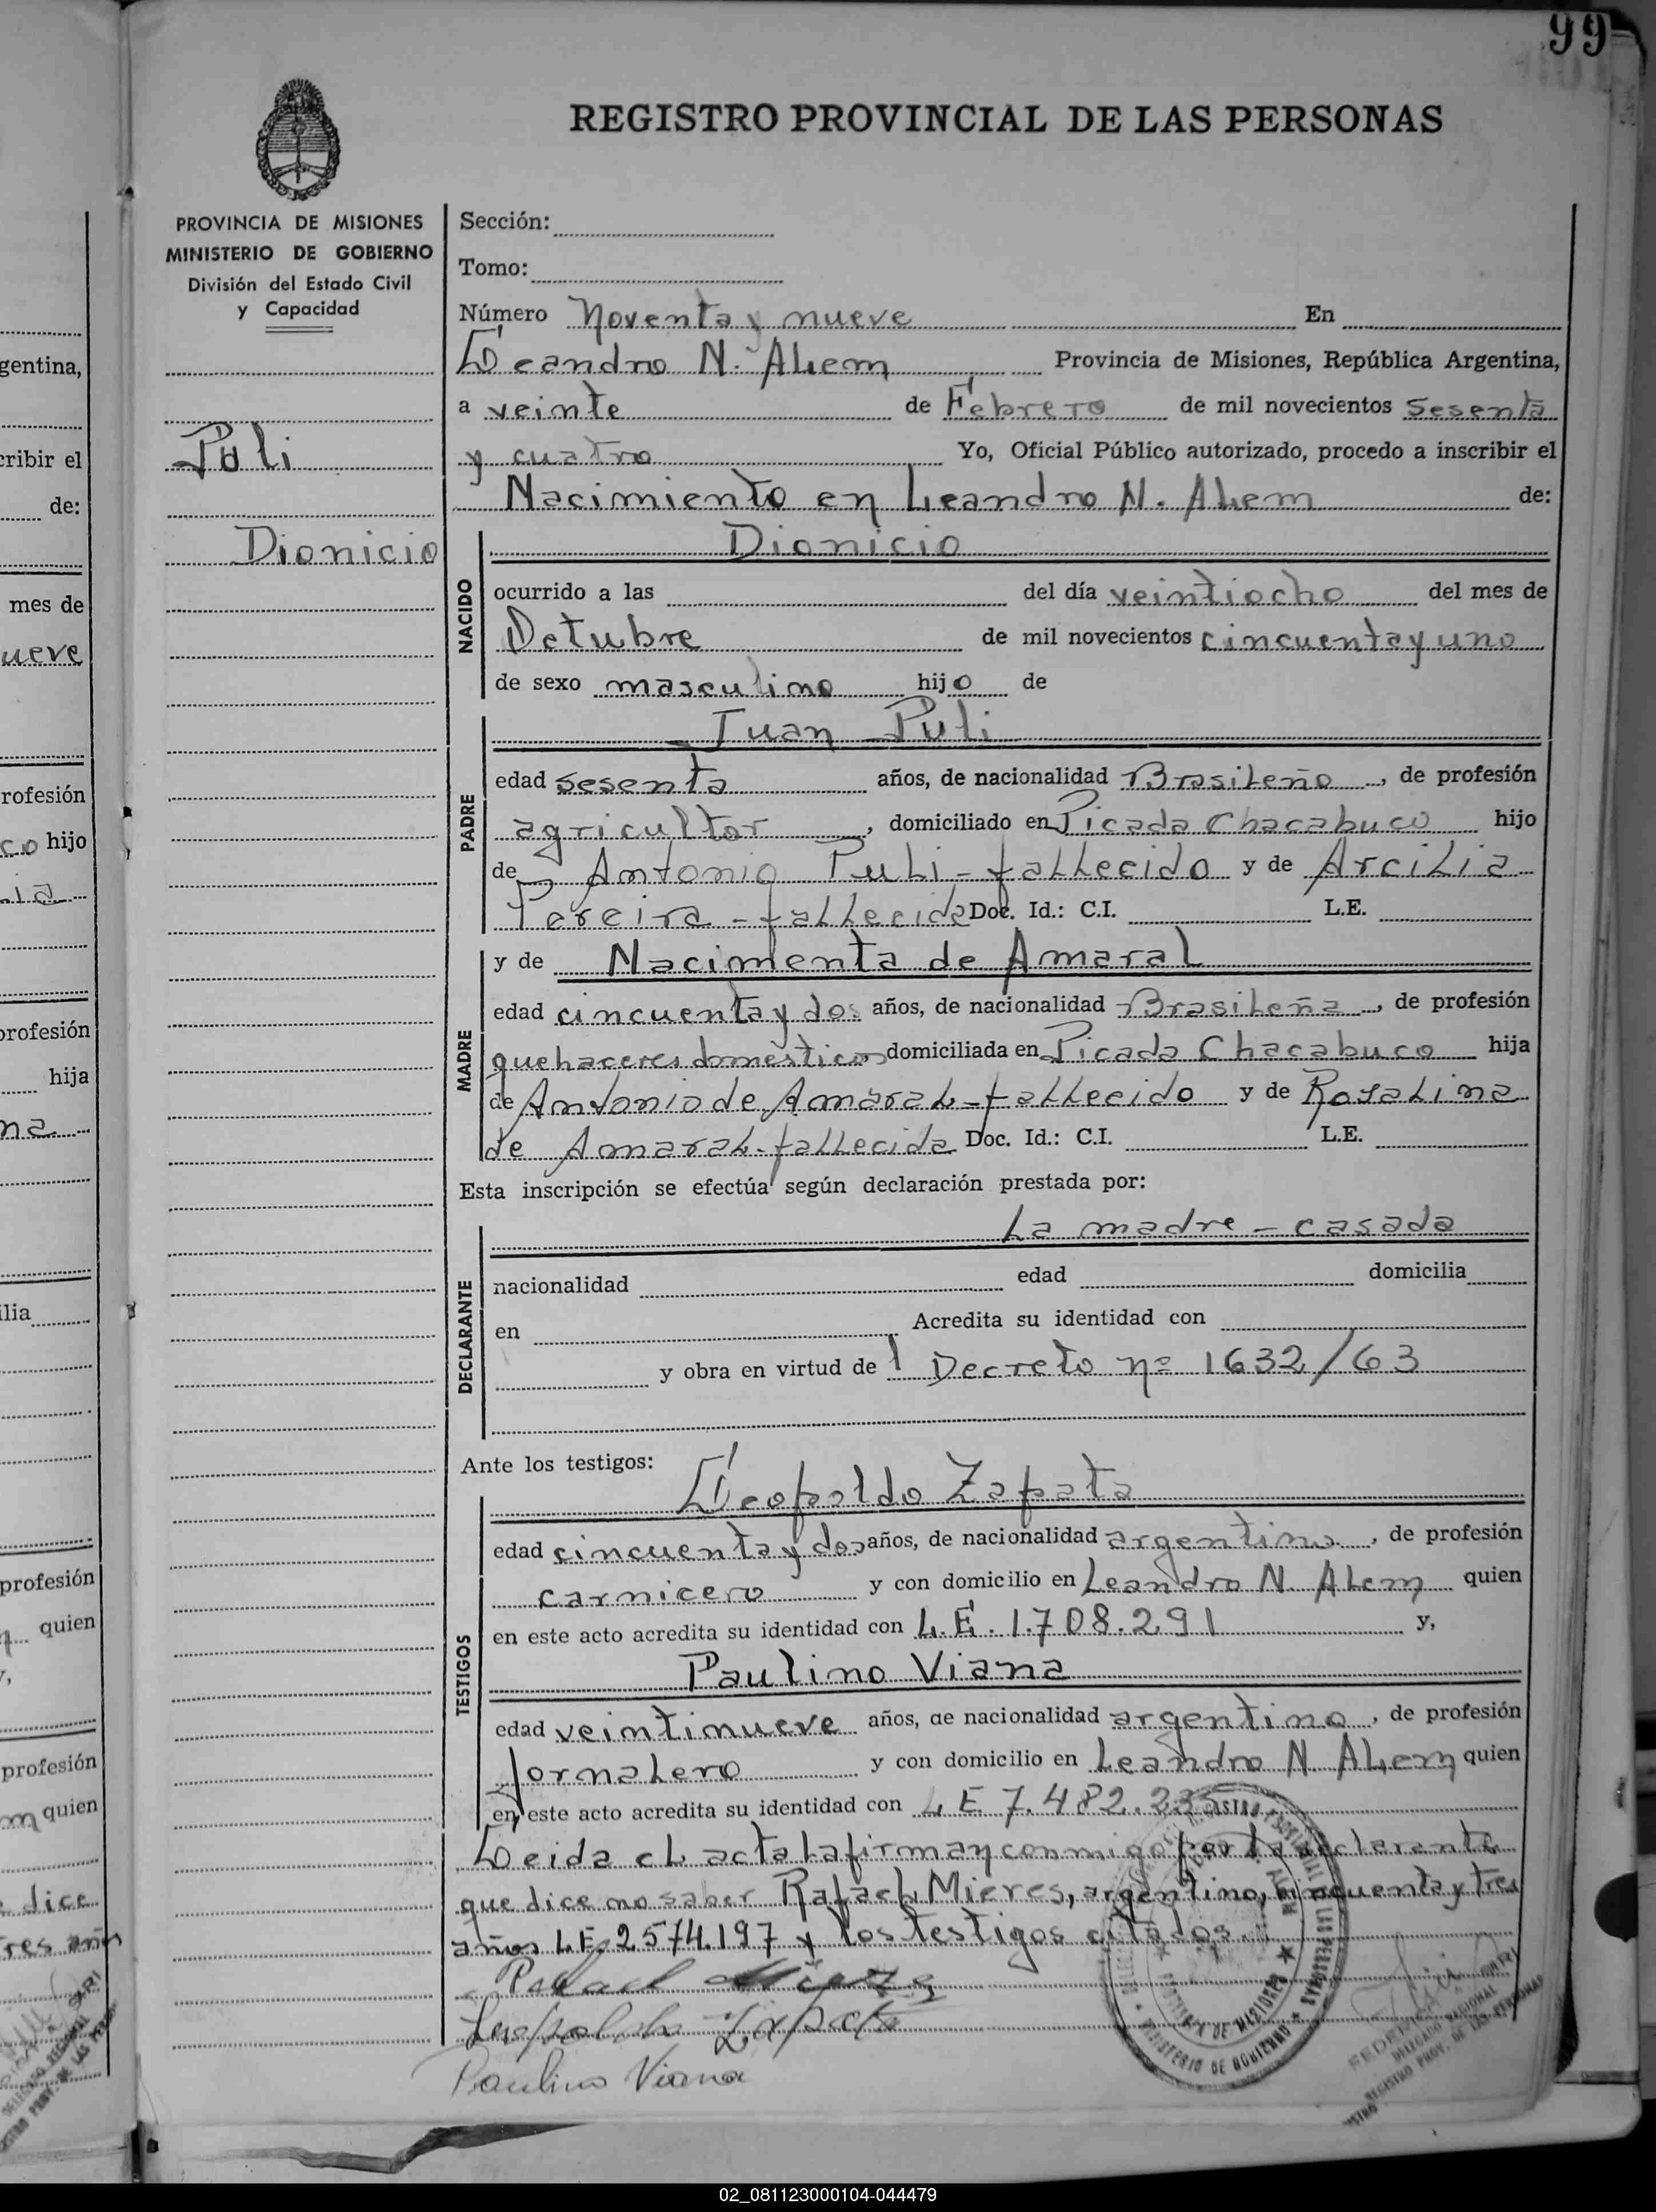 99
REGISTRO PROVINCIAL DE LAS PERSONAS
PROVINCIA DE MISIONES
MINISTERIO DE GOBIERNO
División del Estado Civil
y Capacidad
Puli
Dionicio
Sección:
Tomo:
Número Noventa y nueve En
Leandro N. Alem Provincia de Misiones, República Argentina,
a veinte de Febrero de mil novecientos sesenta
y cuatro Yo, Oficial Público autorizado, procedo a inscribir el
Nacimiento en Leandro N. Alem de:
NACIDO
Dionicio
ocurrido a las del día veintiocho del mes de
Octubre de mil novecientos cincuenta y uno
de sexo masculino hijo de
PADRE
Juan Puli
edad sesenta años, de nacionalidad Brasileño, de profesión
agricultor, domiciliado en Picada Chacabuco hijo
de Antonio Puli - fallecido y de Arcilia
Pereira - fallecida Doc. Id.: C.I. L.E.
MADRE
y de Nacimienta de Amaral
edad cincuenta y dos años, de nacionalidad Brasileña, de profesión
quehaceres domésticos domiciliada en Picada Chacabuco hija
de Antonio de Amaral - fallecido y de Rosalina
de Amaral - fallecida Doc. Id.: C.I. L.E.
Esta inscripción se efectúa según declaración prestada por:
DECLARANTE
La madre - casada
nacionalidad edad domicilia
en Acredita su identidad con
y obra en virtud de Decreto nº 1632/63
Ante los testigos:
TESTIGOS
Leopoldo Zapata
edad cincuenta y dos años, de nacionalidad argentino, de profesión
carnicero y con domicilio en Leandro N. Alem quien
en este acto acredita su identidad con L.E. 1.708.291 y,
Paulino Viana
edad veintinueve años, de nacionalidad argentino, de profesión
jornalero y con domicilio en Leandro N. Alem quien
en este acto acredita su identidad con L E 7.482.235
Leida el acta la firman conmigo por la declarante
que dice no saber Rafael Mieres, argentino, cincuenta y tres
años L.E. 2574.197 y los testigos citados.
Rafael Mieres
Leopoldo Zapata
Paulino Viana
MINISTERIO DE GOBIERNO
PROVINCIA DE MISIONES
DELEGADO REGIONAL
REGISTRO PROV. DE LAS PERSONAS
gentina,
cribir el
de:
mes de
ueve
rofesión
co hijo
lia
profesión
hija
na
ilia
profesión
quien
profesión
m quien
dice
tres años
02_081123000104-044479